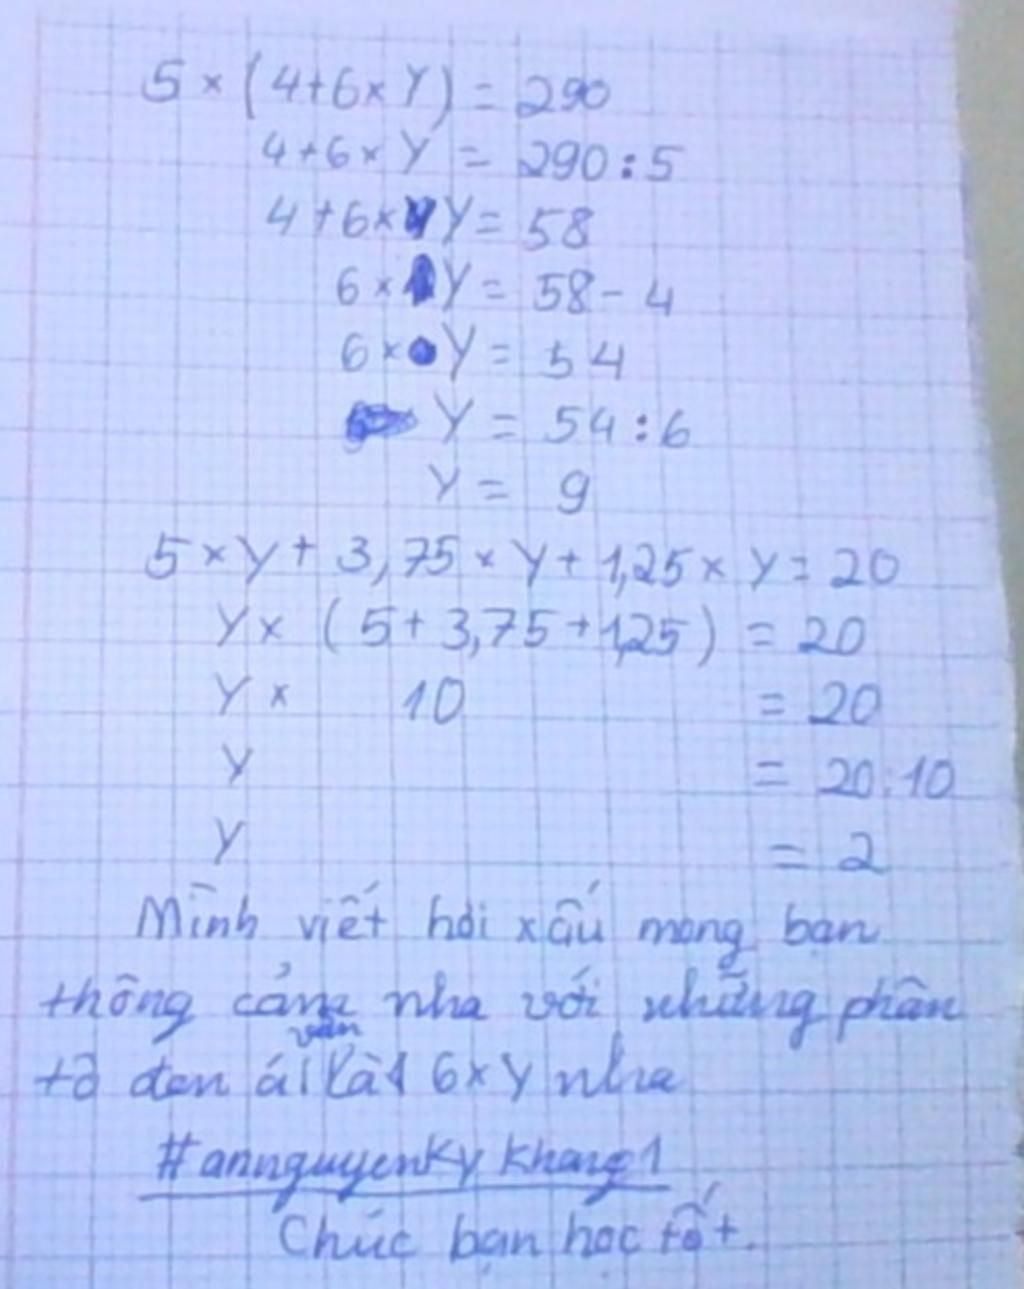 5 × (4+6×Y) = 290
4+6× Y = 290:5
4+6×Y= 58
6×Y= 58-4
6×Y= 54
Y = 54:6
Y= 9
5×y+ 3,75×y+1,25×y=20
Y× (5+3,75+1,25) = 20
Y× 10 = 20
Y = 20:10
Y = 2
Mình viết hơi xấu mong bạn
thông cảm nha với những phần
tô đen ấi vẫn là 6×y nha
#annguyenkykhang1
Chúc bạn học tốt.